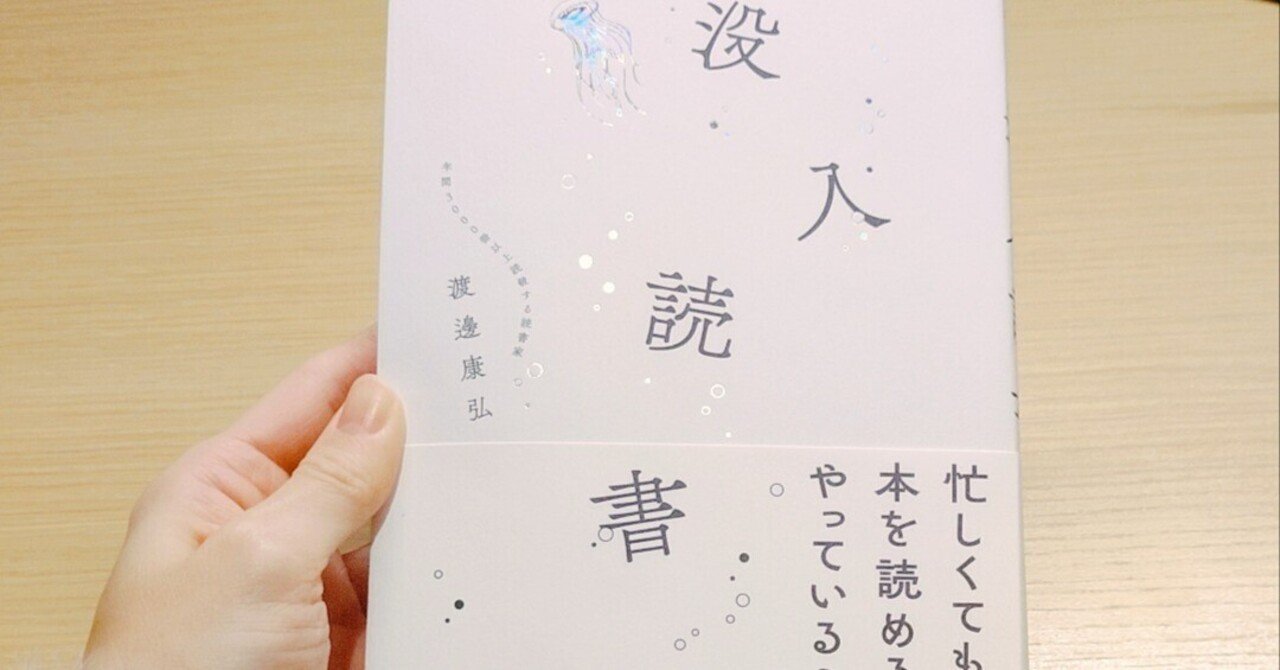 没入読書
年間3000冊以上読破する読書家
渡邊康弘
忙しくても
本を読める
やっている